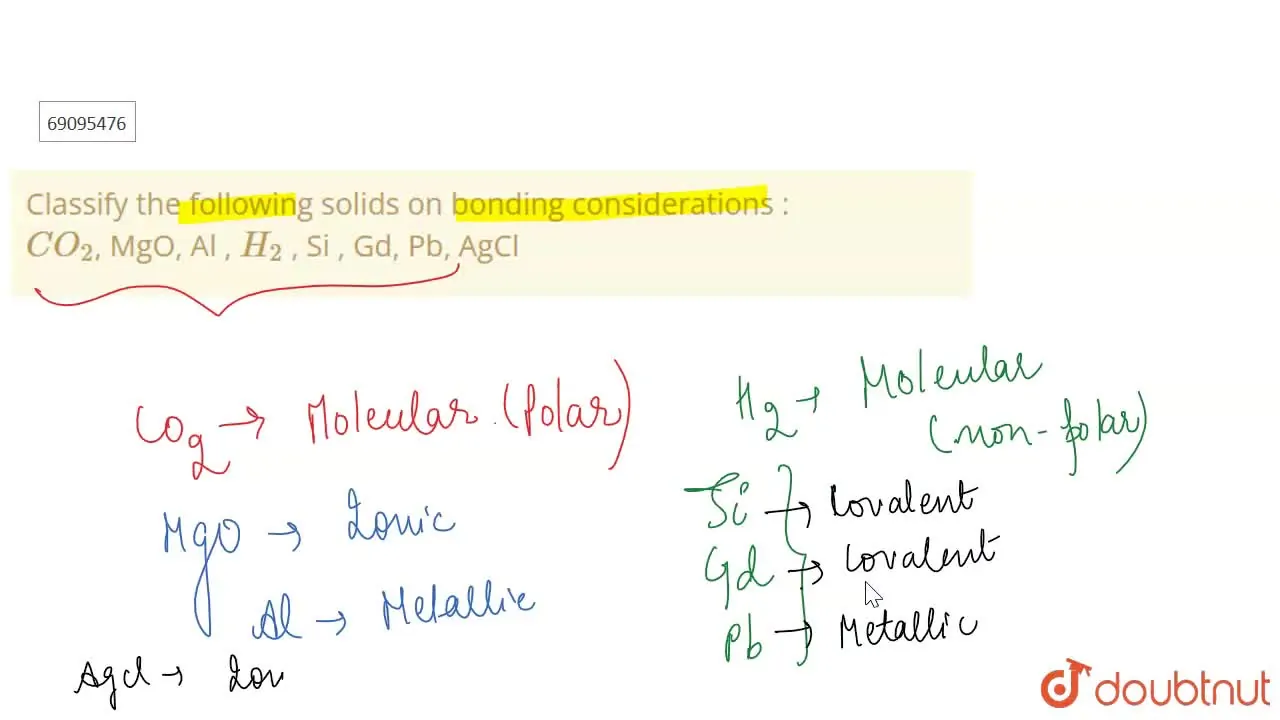 69095476
Classify the following solids on bonding considerations :
CO₂, MgO, Al , H₂ , Si , Gd, Pb, AgCl
CO₂ → Molecular (Polar)
MgO → Ionic
Al → Metallic
AgCl → Ion
H₂ → Moleular
(non-polar)
Si → Covalent
Gd → Covalent
Pb → Metallic
doubtnut